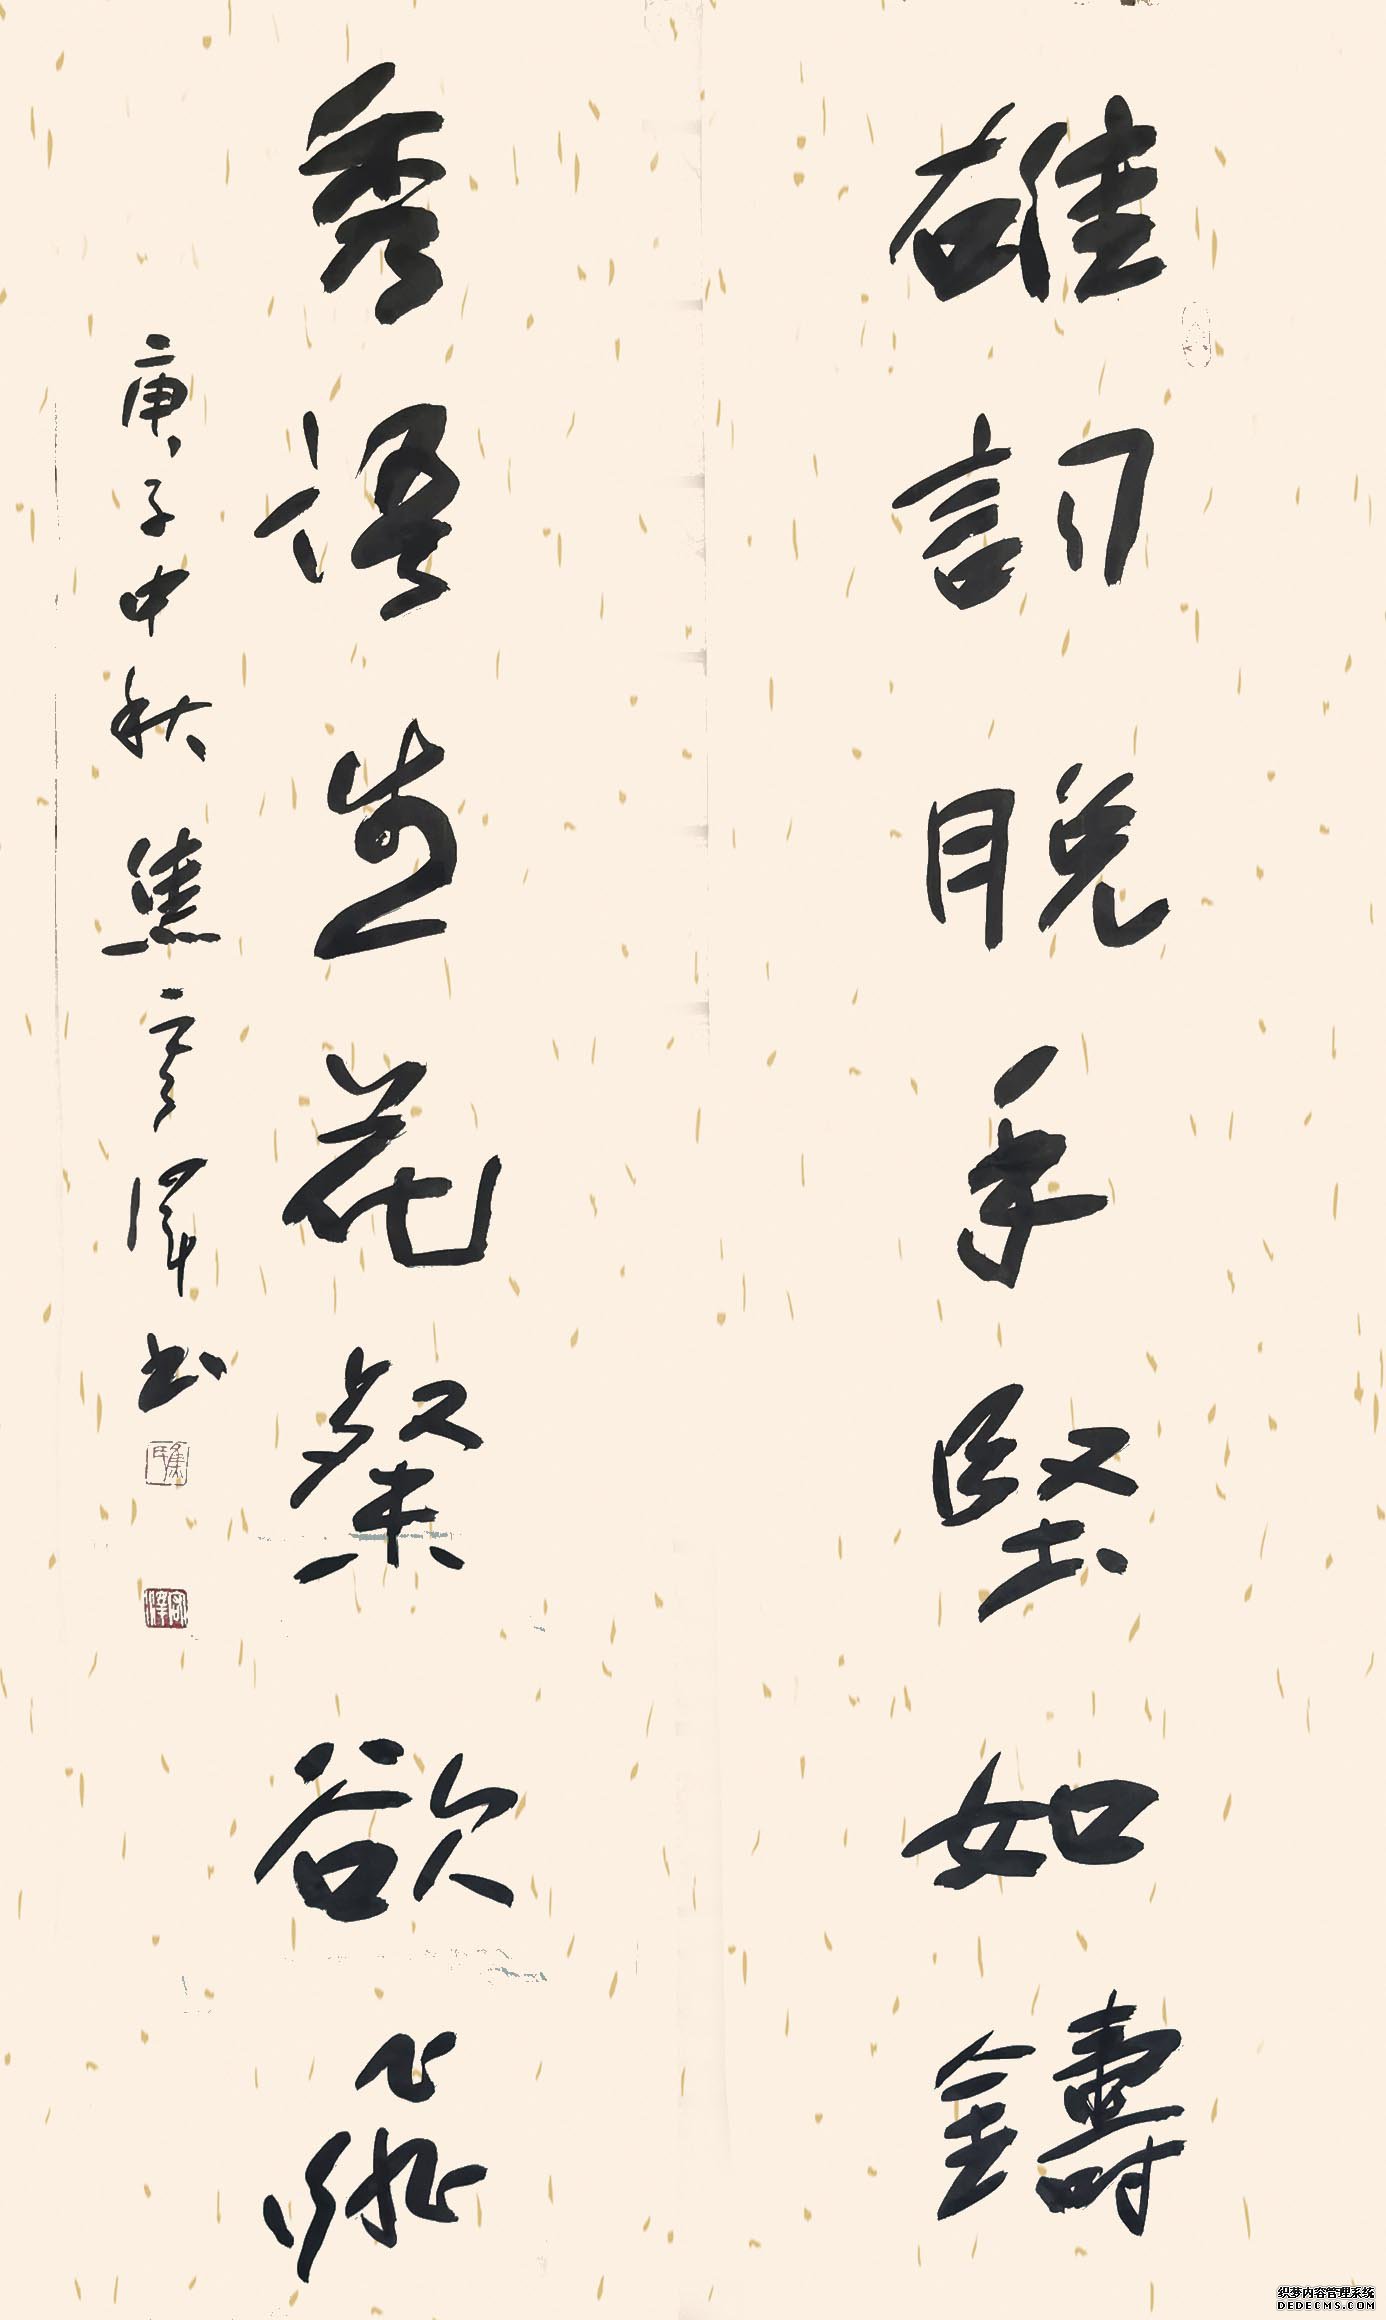 雄詞脫手堅如鑄
秀語生花粲欲飛
庚子中秋焦彥澤書
织梦内容管理系统
DEDECMS.COM